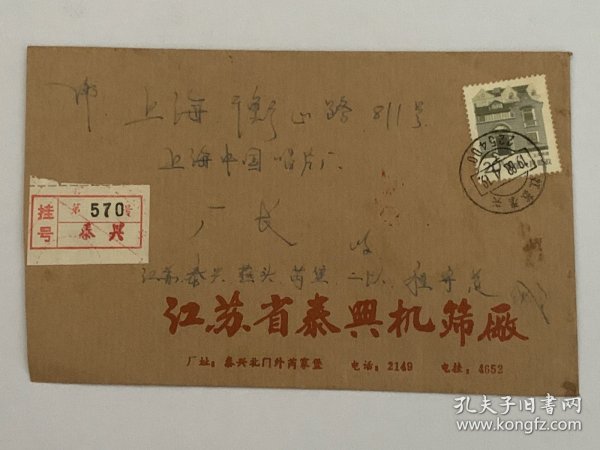 上海衡山路811号
上海中国唱片厂
厂长 收
江苏泰兴燕头芮堡二队
挂号
第 570 号
泰兴
225400
江苏泰兴
江苏省泰興机筛廠
厂址：泰兴北门外芮家堡 电话：2149 电挂：4652
孔夫子旧书网
www.kongfz.com